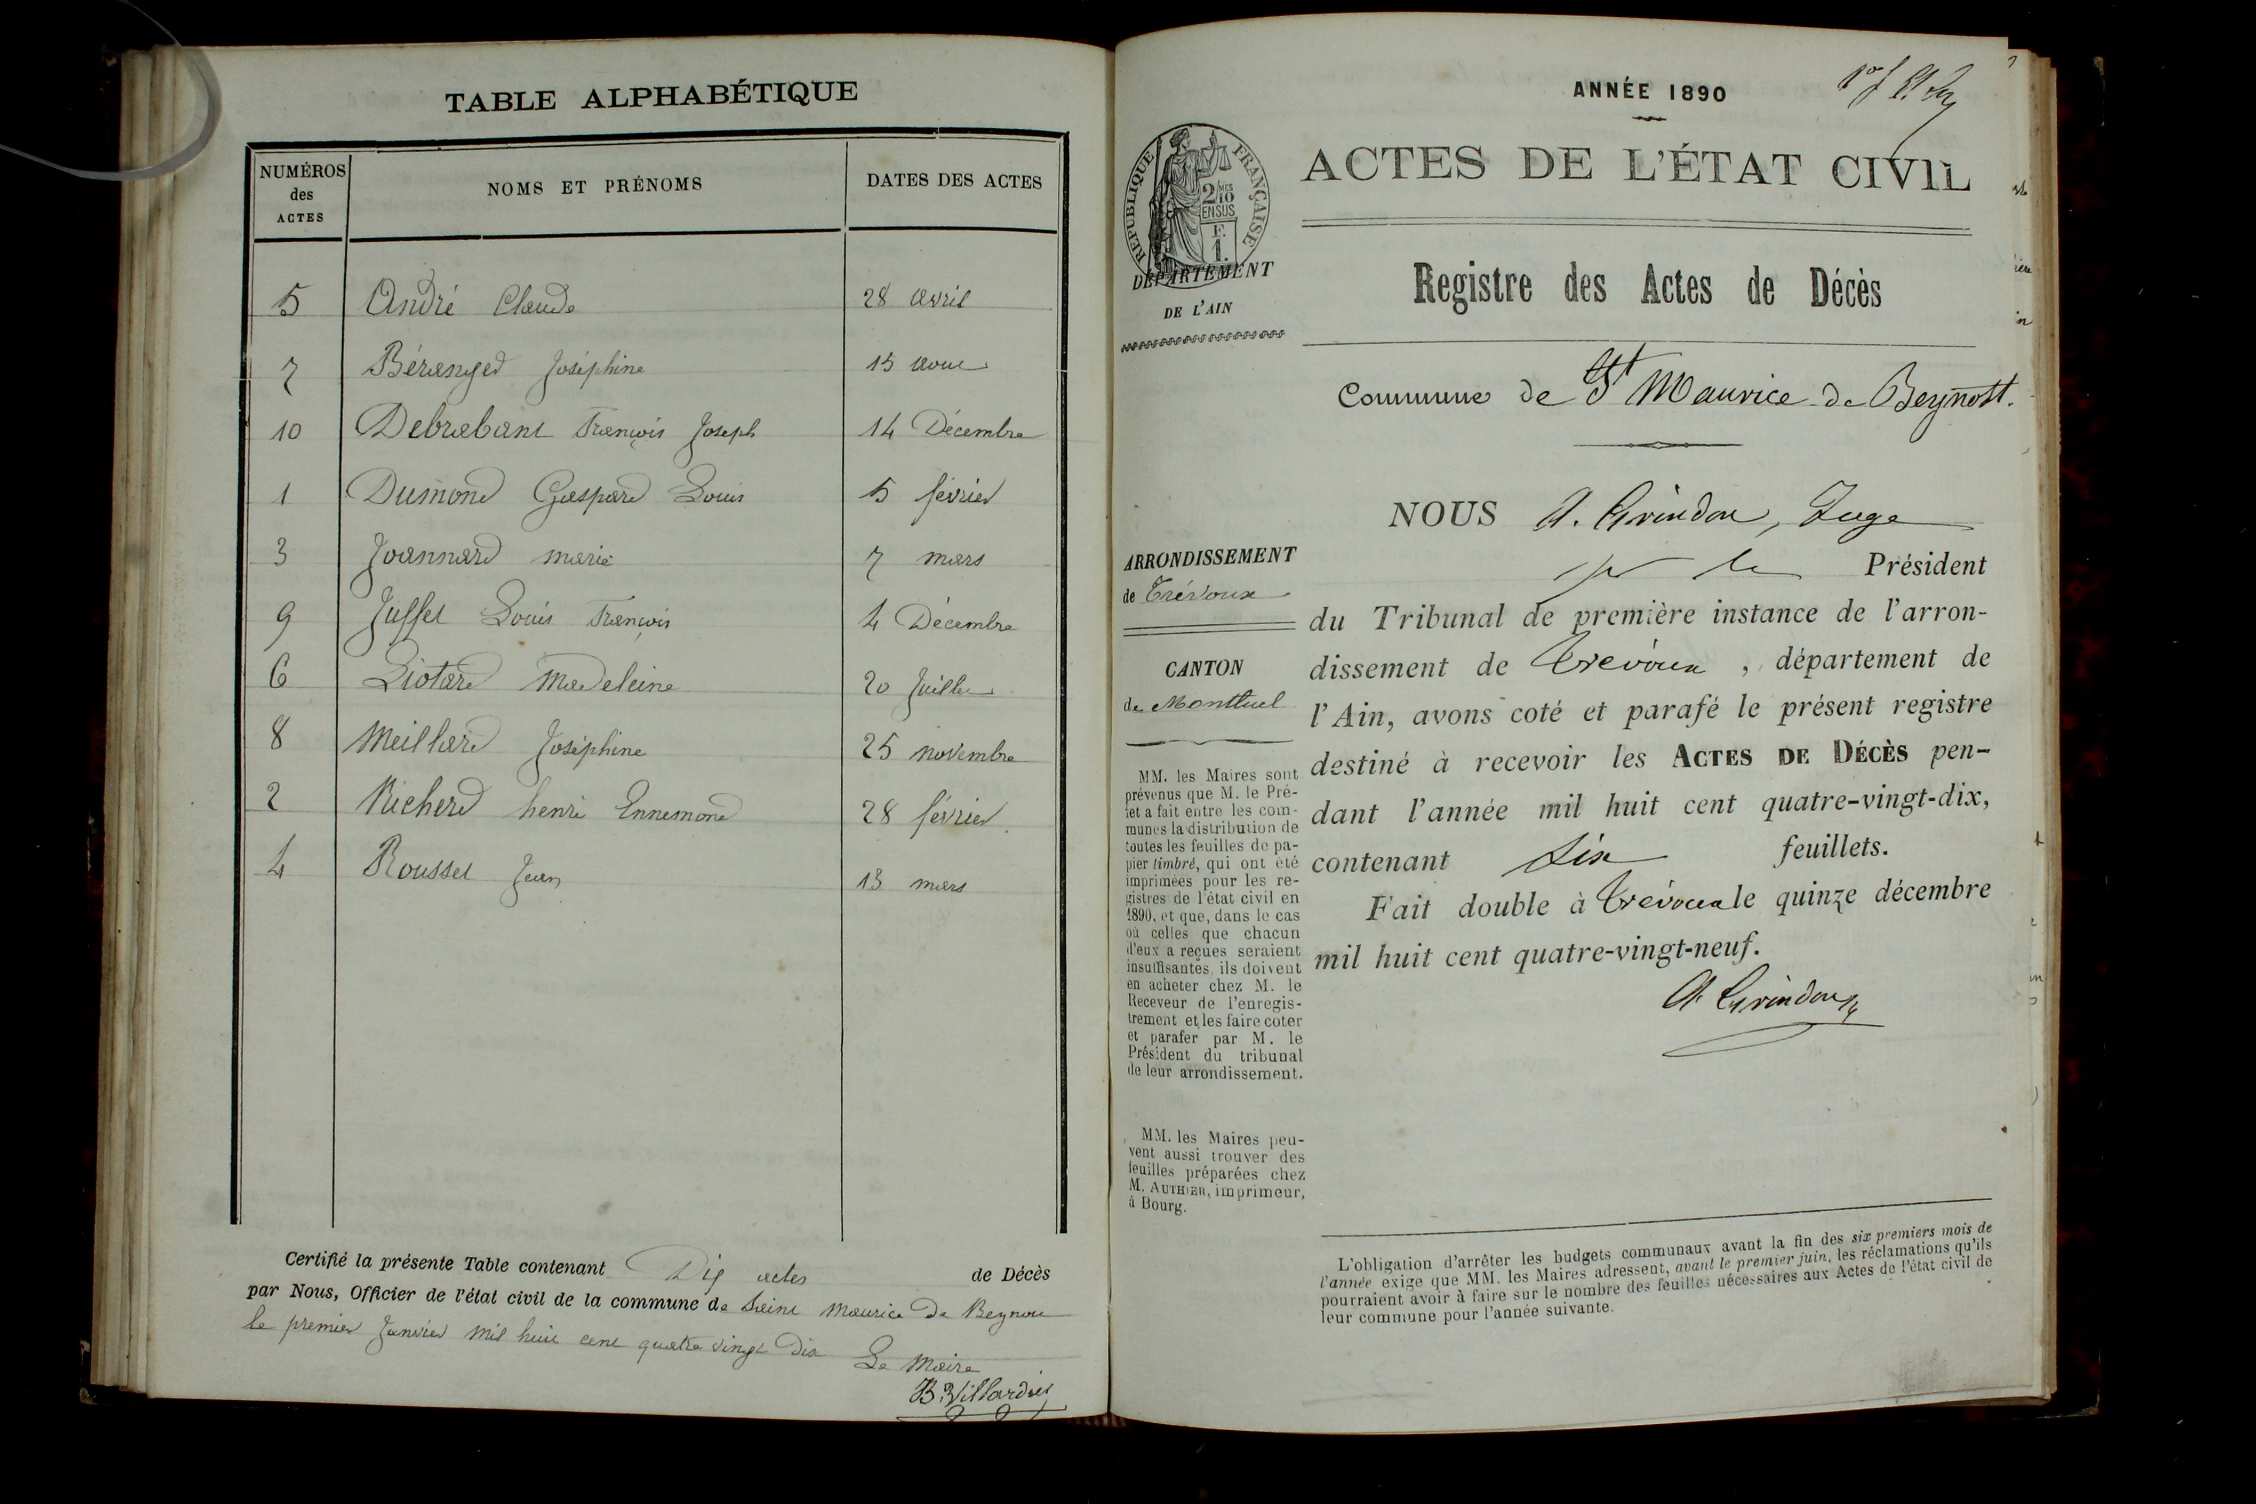 TABLE ALPHABÉTIQUE
NUMÉROS des ACTES NOMS ET PRÉNOMS DATES DES ACTES
5 André Claude 28 avril
7 Béranger Joséphine 13 aout
10 Debrabant François Joseph 14 Décembre
1 Dumond Gaspard Louis 5 février
3 Joannard marie 7 mars
9 Juffet Louis François 4 Décembre
6 Liotard Madeleine 20 Juillet
8 Meilland Joséphine 25 novembre
2 Richerd henri Ennemond 28 février
4 Rousset Jean 13 mars
Certifié la présente Table contenant Dix actes de Décès
par Nous, Officier de l'état civil de la commune de Saint Maurice de Beynost
le premier Janvier mil huit cent quatre vingt Dix
Le Maire
B. Villardier
ANNÉE 1890
ACTES DE L'ÉTAT CIVIL
REPUBLIQUE FRANÇAISE
2/10MES
EN SUS
F.
1.
DÉPARTEMENT
DE L'AIN
Registre des Actes de Décès
Commune de St Maurice de Beynost.
ARRONDISSEMENT
de Trévoux
CANTON
de Montluel
MM. les Maires sont
prévenus que M. le Pré-
fet a fait entre les com-
munes la distribution de
toutes les feuilles de pa-
pier timbré, qui ont été
imprimées pour les re-
gistres de l'état civil en
1890, et que, dans le cas
où celles que chacun
d'eux a reçues seraient
insuffisantes, ils doivent
en acheter chez M. le
Receveur de l'enregis-
trement et les faire coter
et parafer par M. le
Président du tribunal
de leur arrondissement.
MM. les Maires peu-
vent aussi trouver des
feuilles préparées chez
M. AUTHIER, imprimeur,
à Bourg.
NOUS A. Grindon, Juge
pr le Président
du Tribunal de première instance de l'arron-
dissement de Trévoux, département de
l'Ain, avons coté et parafé le présent registre
destiné à recevoir les ACTES DE DÉCÈS pen-
dant l'année mil huit cent quatre-vingt-dix,
contenant Six feuillets.
Fait double à Trévoux le quinze décembre
mil huit cent quatre-vingt-neuf.
A. Grindon
L'obligation d'arrêter les budgets communaux avant la fin des six premiers mois de
l'année exige que MM. les Maires adressent, avant le premier juin, les réclamations qu'ils
pourraient avoir à faire sur le nombre des feuilles nécessaires aux Actes de l'état civil de
leur commune pour l'année suivante.